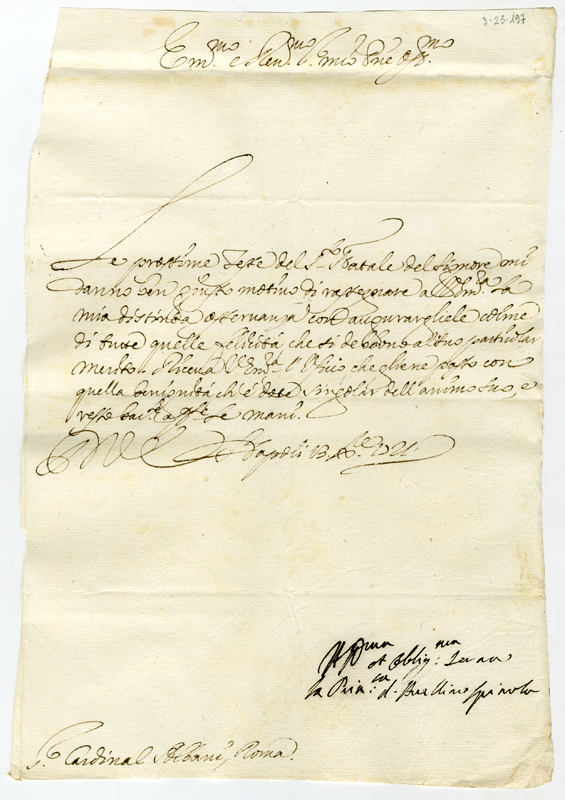 3-25-197
Em.mo e Rev.mo S.r mio P.ne Oss.mo
Le prossime Feste del S.to Natale del Signore mi
danno ben giusto motivo di rassegnare a V. Em.za la
mia distinta osservanza con augurargliele colme
di tutte quelle felicità che si debbono al suo particular
merito. Riceva V. Em.za l'Ufizio che gliene passo con
quella benignità ch'è dote singolar dell'animo suo, e
resto bac.le aff.te le mani.
Di V. E. Napoli 13. Xbre 1721.
Aff.ma et Oblig.ma Serva
la Prin.ssa d. Avellino Spinola
S.r Cardinal Albani, Roma.